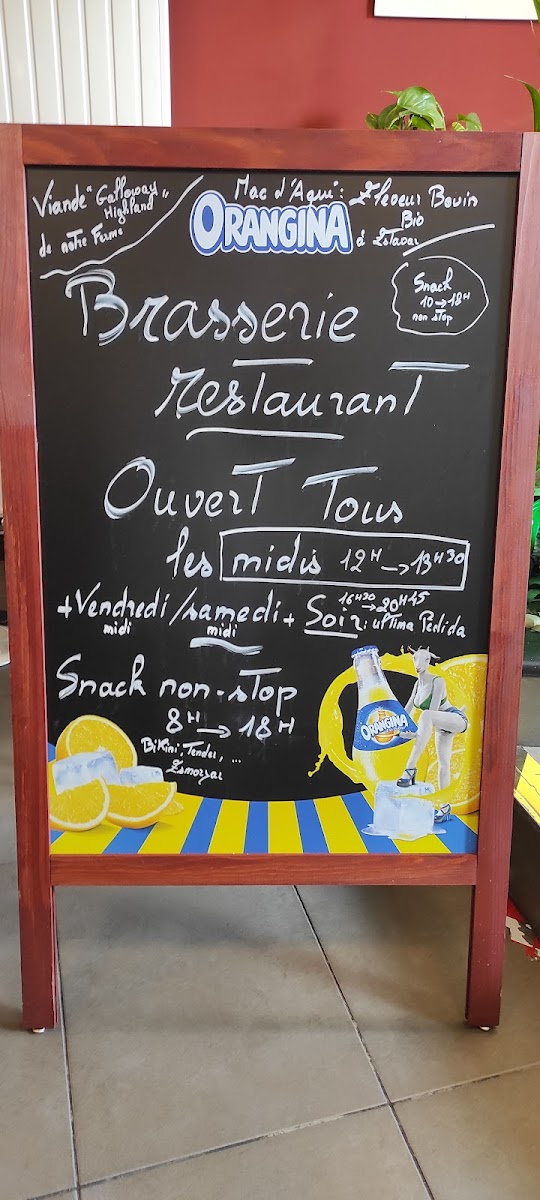 Viande "Galloway
Highland"
de notre Ferme
Mac d'Aqui: Eleveur Bovin
Bio
à Estavar
ORANGINA
Snack
10 → 18H
non stop
Brasserie
restaurant
Ouvert Tous
les midis 12H → 13H30
+ Vendredi / samedi + Soir: ultima Pédida
midi
midi
16H30 → 20H45
Snack non-stop
8H → 18H
Bikini, Tendes, ...
Esmorzar
ORANGINA